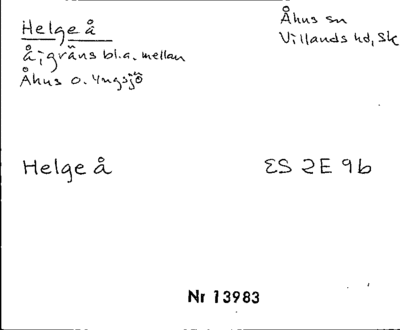 Helge å
Åhus sn
Villands hd, Sk
å; gräns bl.a. mellan
Åhus o. Yngsjö
Helge å
ES 2E 9b
Nr 13983